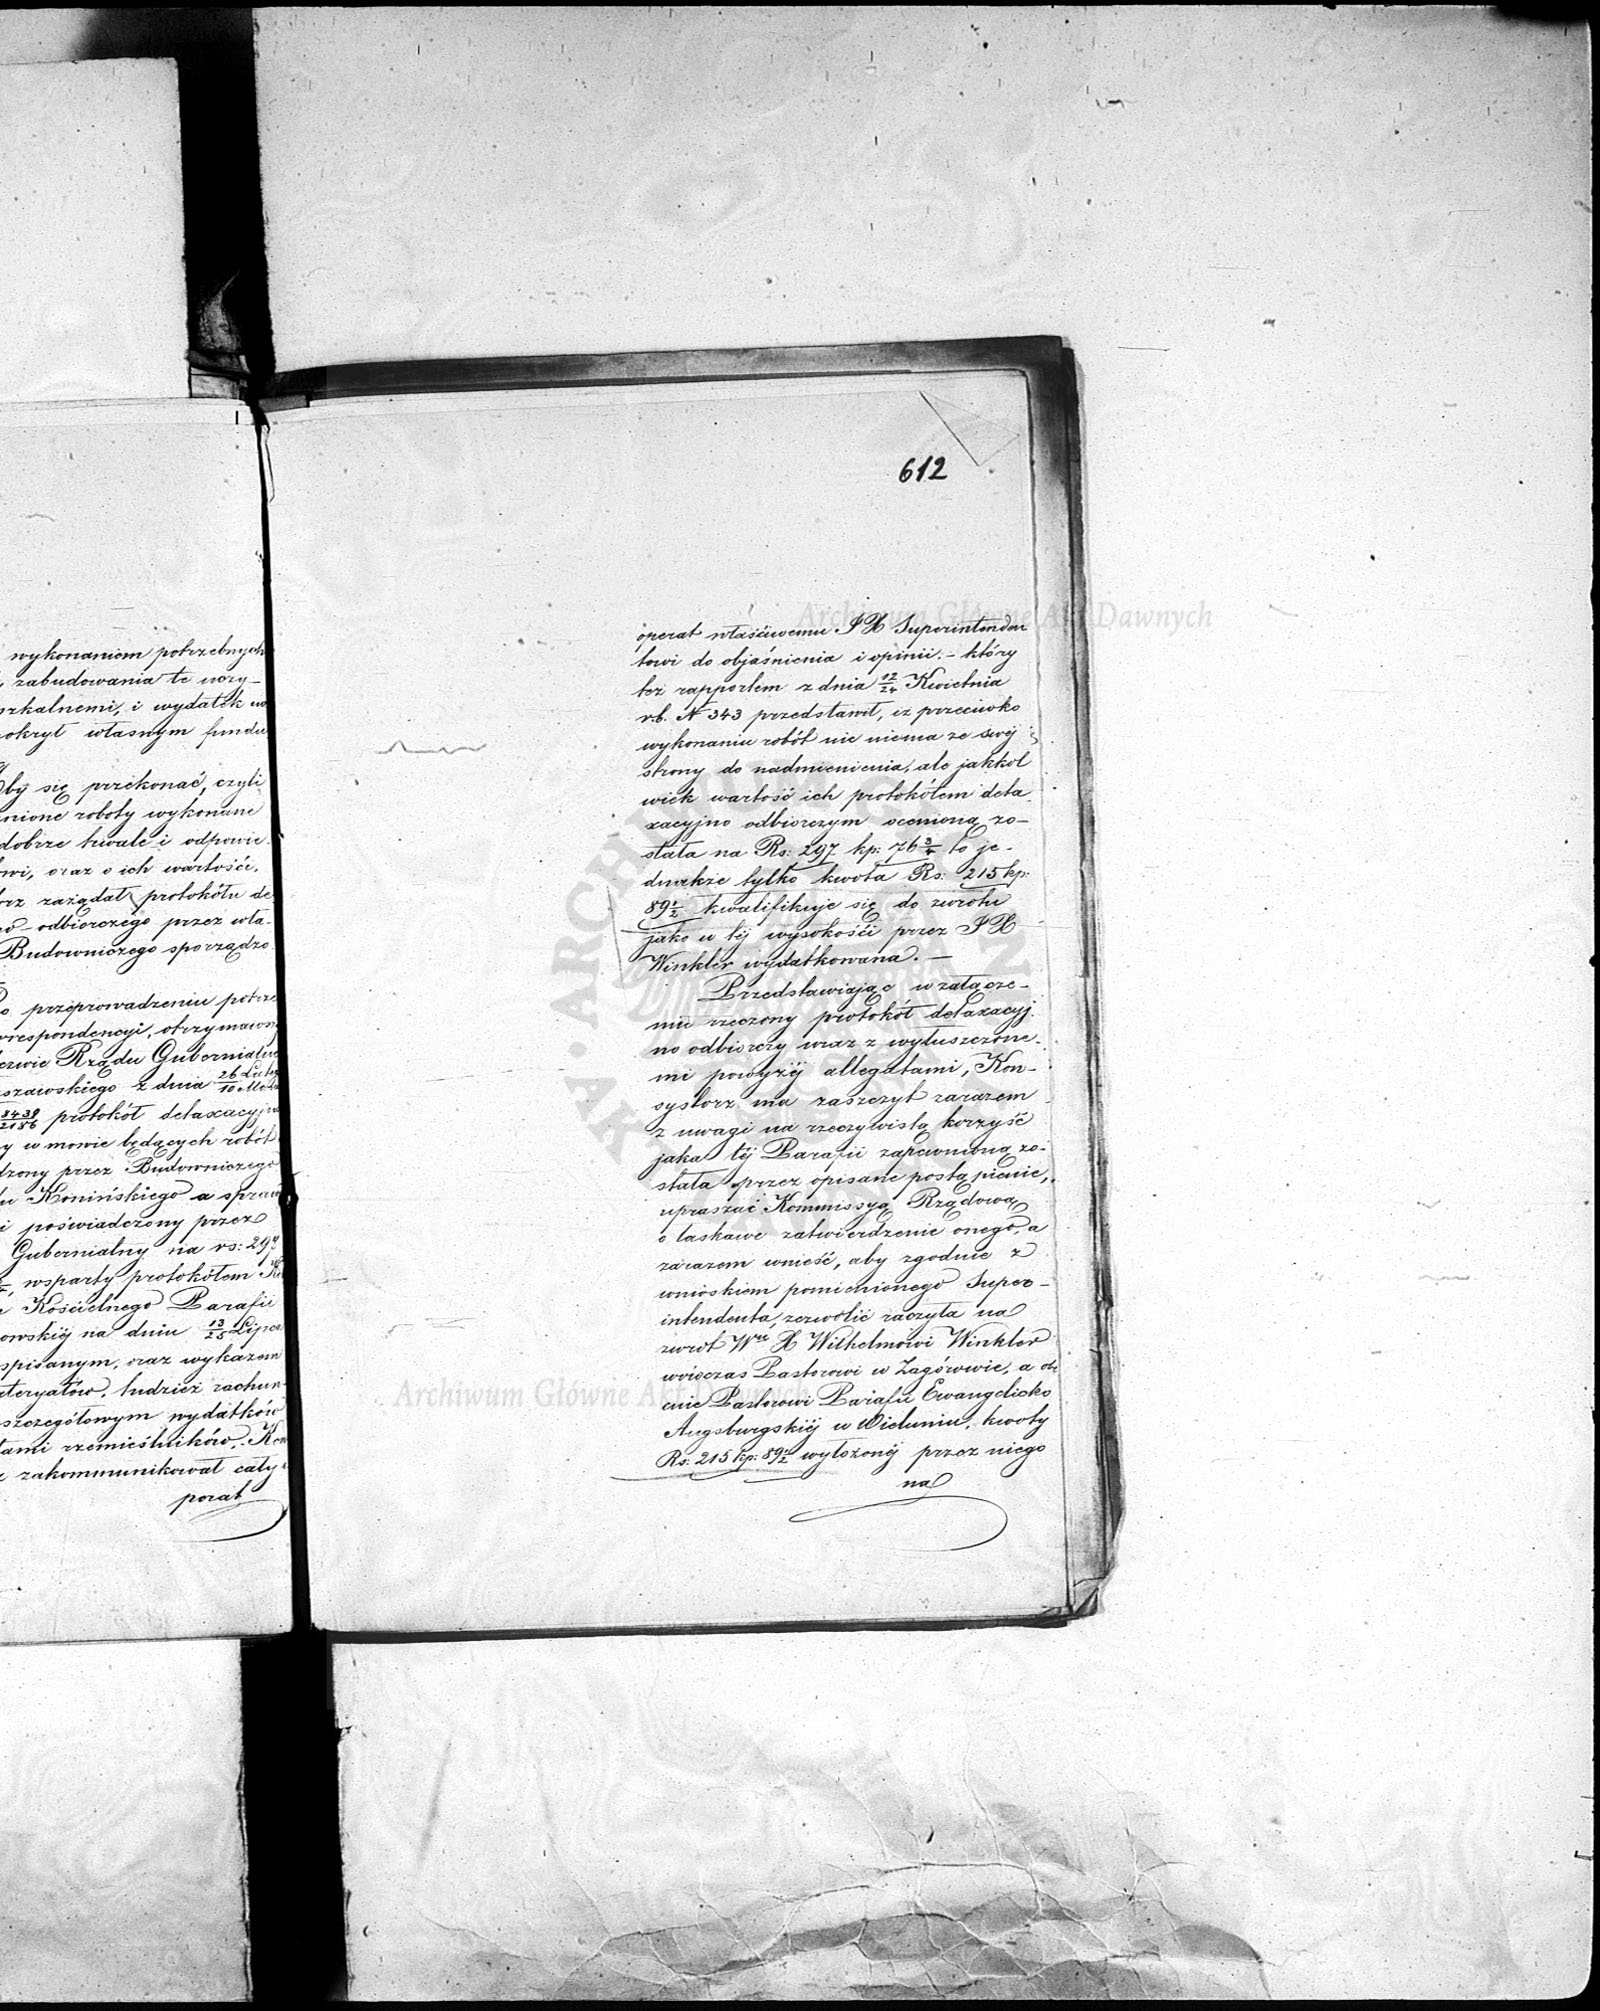 wykonaniem potrzebnych
zabudowania te uczy-
szkalnemi, i wydatek na
okrył własnym fundu
by się przekonać, czyli
nione roboty wykonane
dobrze trwale i odpowie-
wi, oraz o ich wartości,
orz zażądał protokółu de
odbiorczego przez wła-
Budowniczego sporządzo
przeprowadzeniu potrze
respondencyi, otrzymawszy
Rządu Gubernialne
szawskiego z dnia 26/10 Lutego/Marca
8439/2186 protokół detaxacyjno
y w mowie będących robót
dzony przez Budowniczego
Konińskiego a spraw
i poświadczony przez
Gubernialny na rs: 297
wsparty protokółem
Kościelnego Parafii
owskiéj na dniu 13/25 Lipca
spisanym, oraz wykazem
ateryałów, tudzież rachun-
szczegółowym wydatków
tami rzemieślników, Kon
zakommunikował cały
perat
612
operat właściwemu JX Superintenden
towi do objaśnienia i opinii:- który
też rapportem z dnia 12/24 Kwietnia
rb. N 343 przedstawił, iż przeciwko
wykonaniu robót nic niema ze swéj
strony do nadmienienia, ale jakkol
wiek wartość ich protokółem deta
xacyjno odbiorczym ocenioną zo-
stała na Rs: 297 kp: 76 3/4 to je-
dnakże tylko kwota Rs: 215 kp:
89 1/2 kwalifikuje się do zwrotu
jako w téj wysokości przez JX
Winkler wydatkowana. -
Przedstawiając w załącze-
niu rzeczony protokół detaxacyj
no odbiorczy wraz z wyłuszczone-
mi powyżéj allegatami, Kon-
systorz ma zaszczyt zarazem
z uwagi na rzeczywistą korzyść
jaka téj Parafii zapewnioną zo-
stała przez opisane postąpienie,
upraszać Kommissyą Rządową
o łaskawe zatwierdzenie onego, a
zarazem wnieść, aby zgodnie z
wnioskiem pomienionego Super-
intendenta, zezwolić raczyła na
zwrot X Wilhelmowi Winkler
wówczas Pastorowi w Zagórowie, a obe
cnie Pastorowi Parafii Ewangelicko
Augsburgskiéj w Wieluniu, kwoty
Rs: 215 kp: 89 1/2 wyłożonéj przez niego
na
Archiwum Główne Akt Dawnych
Archiwum Główne Akt Dawnych